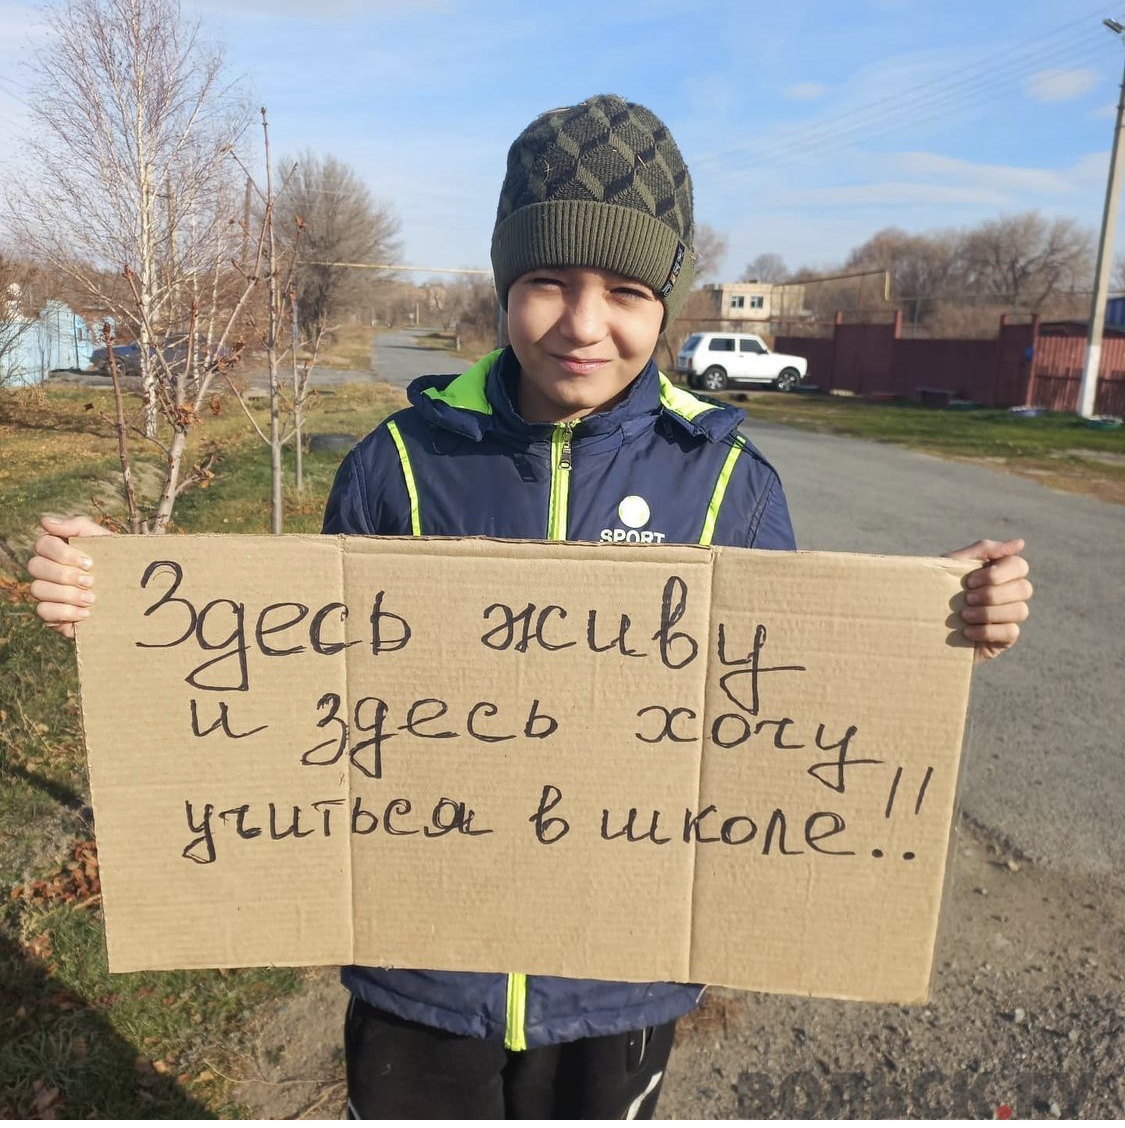 SPORT
Здесь живу
и здесь хочу
учиться в школе!!